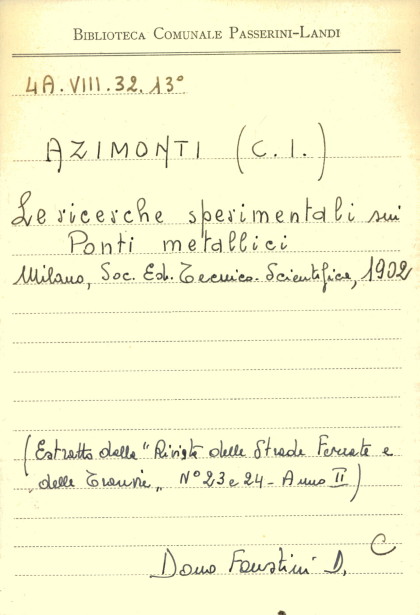 BIBLIOTECA COMUNALE PASSERINI-LANDI
4A.VIII.32.13°
AZIMONTI (C.I.)
Le ricerche sperimentali sui
Ponti metallici
Milano, Soc. Ed. Tecnico-Scientifica, 1902
(Estratto dalla "Rivista delle Strade Ferrate e
delle Tranvie„ N° 23 e 24 - Anno II)
Dono Faustini D. C